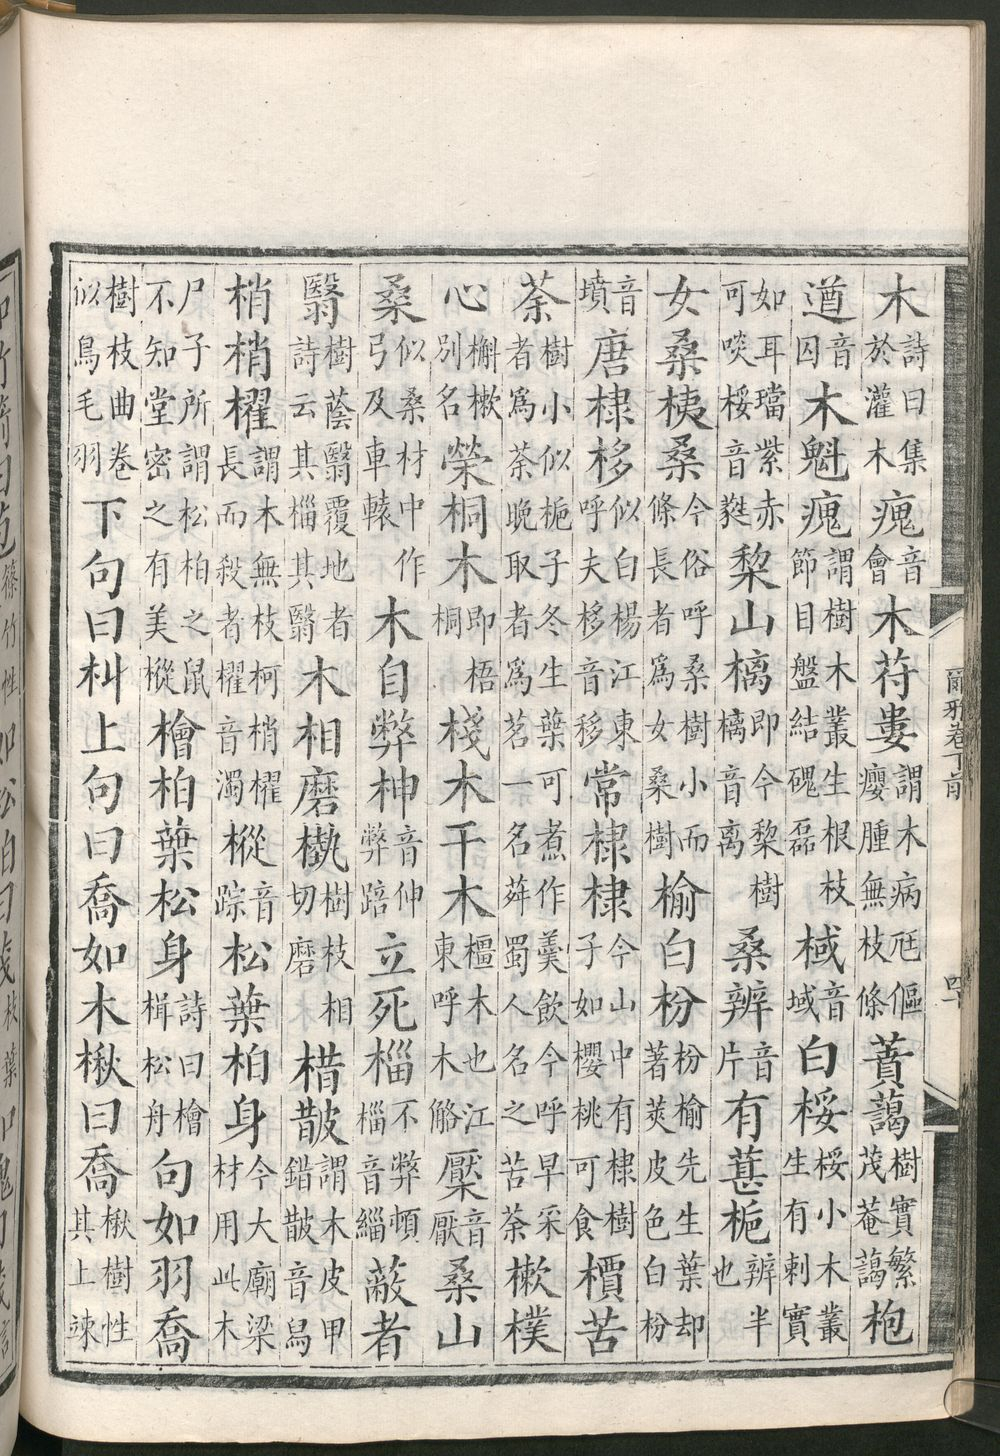 木詩曰集於灌木瘣音會木苻婁謂木病尫傴癭腫無枝條蕡藹樹實繁茂菴藹枹
遒音囚木魁瘣謂樹木叢生根枝節目盤結磈磊棫音域白桵桵小木叢生有刺實
如耳璫紫赤可啖桵音蕤棃山樆即今棃樹樆音離桑辨音片有葚梔辨半也
女桑桋桑今俗呼桑樹小而條長者爲女桑樹榆白枌枌榆先生葉却著莢皮色白枌
音墳唐棣栘似白楊江東呼夫栘音移常棣棣今山中有棣樹子如櫻桃可食檟苦
荼樹小似梔子冬生葉可煮作羹飲今呼早采者爲荼晚取者爲茗一名荈蜀人名之苦荼樕樸
心槲樕別名榮桐木即梧桐棧木干木橿木也江東呼木觡檿音厭桑山
桑似桑材中作弓及車轅木自弊柛音伸弊踣立死椔不弊頓椔音緇蔽者
翳樹蔭翳覆地者詩云其椔其翳木相磨槸樹枝相切磨棤皵謂木皮甲錯皵音舄
梢梢櫂謂木無枝柯梢櫂長而殺者櫂音濁樅音踪松葉柏身今大廟梁材用此木
尸子所謂松柏之鼠不知堂密之有美樅檜柏葉松身詩曰檜楫松舟句如羽喬
樹枝曲卷似鳥毛羽下句曰朻上句曰喬如木楸曰喬楸樹性其上竦
爾雅卷下前